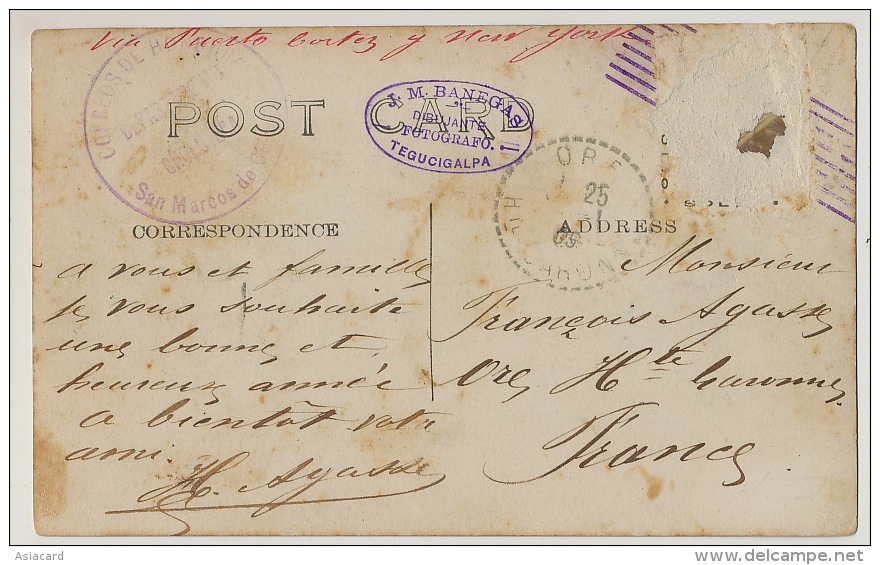 Via Puerto Cortez y New York
CORREOS DE
San Marcos de
POST CARD
J. M. BANEGAS
DIBUJANTE
FOTOGRAFO.
TEGUCIGALPA
ORE
25
09
CORRESPONDENCE
ADDRESS
a vous et famille
je vous souhaite
une bonne et
heureuse année
a bientôt votre
ami.
H. Agasse
Monsieur
François Agasse
Ore Hte Garonne
France
Asiacard
www.delcampe.net